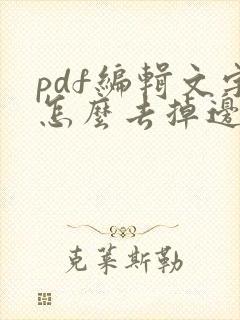 pdf編輯文字
怎麼去掉邊
克萊斯勒